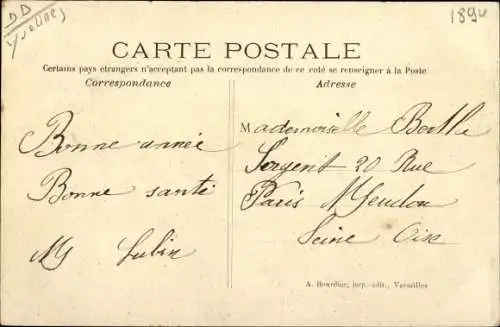 DD
Yvelines
1894
CARTE POSTALE
Certains pays étrangers n'acceptant pas la correspondance de ce coté se renseigner à la Poste
Correspondance
Adresse
Bonne année
Bonne santé
Lubin
Mademoiselle Berthe
Sergent 20 Rue
Paris Meudon
Seine Oise
A. Bourdier, imp.-édit., Versailles